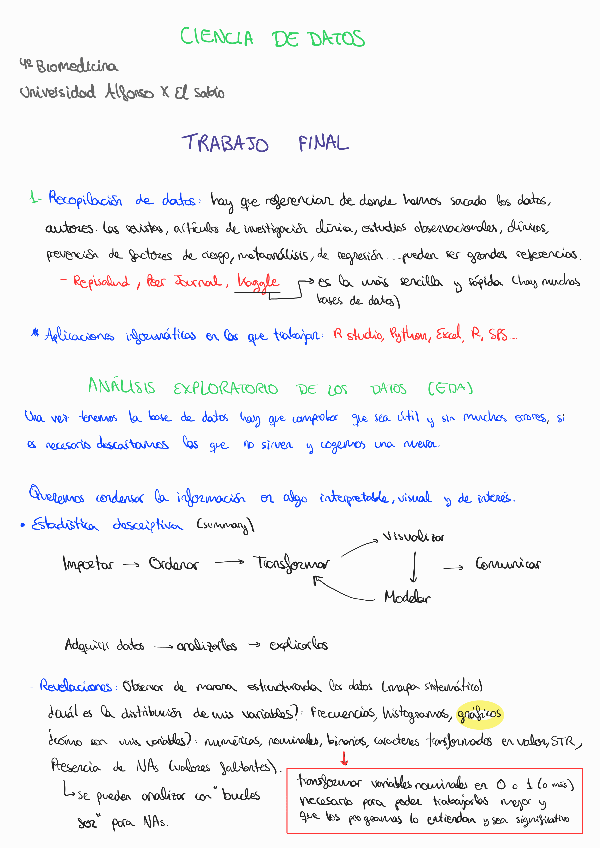 CIENCIA DE DATOS
4º Biomedicina
Universidad Alfonso X El Sabio
TRABAJO FINAL
1- Recopilación de datos: hay que referenciar de donde hemos sacado los datos,
autores. Las revistas, artículos de investigación clínica, estudios observacionales, clínicos,
prevención de factores de riesgo, metaanálisis, de regresión... pueden ser grandes referencias.
- Repisalud, Peer Journal, Kaggle → es la más sencilla y rápida (hay muchas
bases de datos)
* Aplicaciones informáticas en las que trabajar: R studio, Python, Excel, R, SPS...
ANÁLISIS EXPLORATORIO DE LOS DATOS (EDA)
Una vez tenemos la base de datos hay que comprobar que sea útil y sin muchos errores, si
es necesario descartamos las que no sirven y cogemos una nueva.
Queremos condensar la información en algo interpretable, visual y de interés.
• Estadística descriptiva (summary)
Visualizar
Importar → Ordenar → Transformar → Comunicar
Modelar
Adquirir datos → analizarlos → explicarlos
Revelaciones: Observar de manera estructurada los datos (mapa sistemático)
¿Cuál es la distribución de mis variables?: Frecuencias, histogramas, gráficos
¿Cómo son mis variables?: numéricas, nominales, binarias, caracteres transformados en valor, STR,
Presencia de NAs (valores faltantes).
↳ se pueden analizar con "bucles
for" para NAs.
transformar variables nominales en 0 o 1 (o más)
necesario para poder trabajarlas mejor y
que los programas lo entiendan y sea significativo